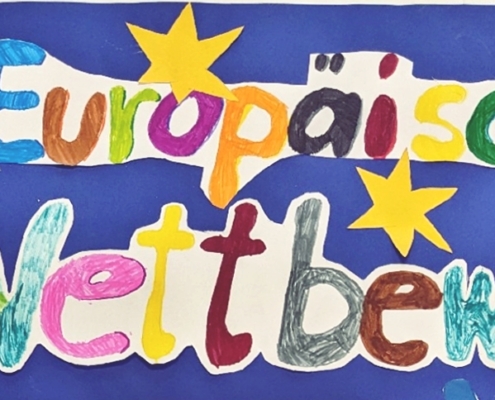 Europäisc
Wettbew